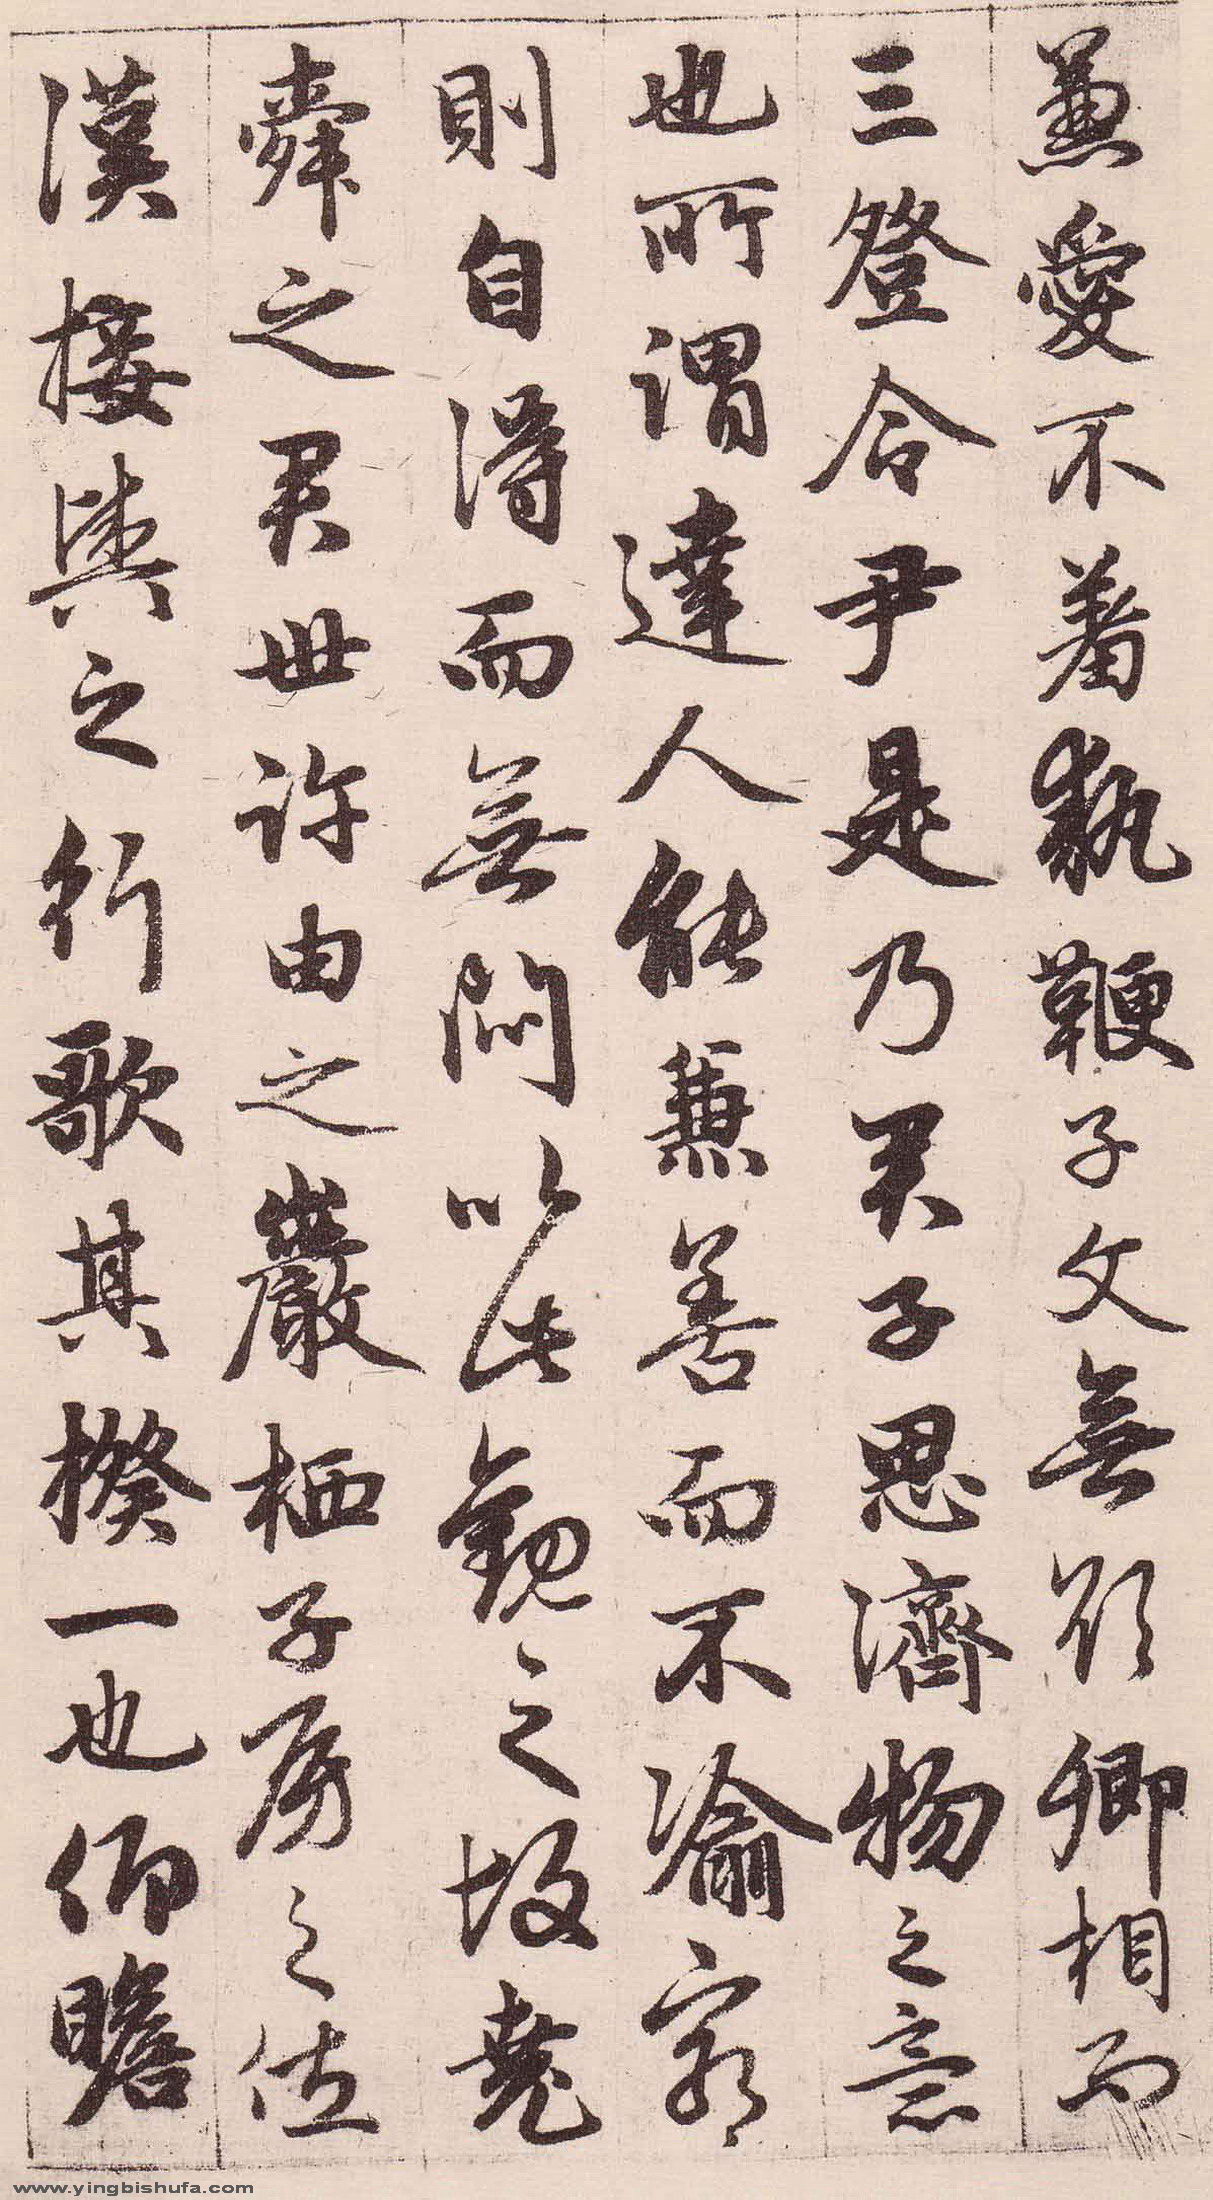 兼愛不羞執鞭子文無欲卿相而
三登令尹是乃君子思濟物之意
也所謂達人能兼善而不渝窮
則自得而無悶以此觀之故堯
舜之君世許由之巖栖子房之佐
漢接輿之行歌其揆一也仰瞻
www.yingbishufa.com